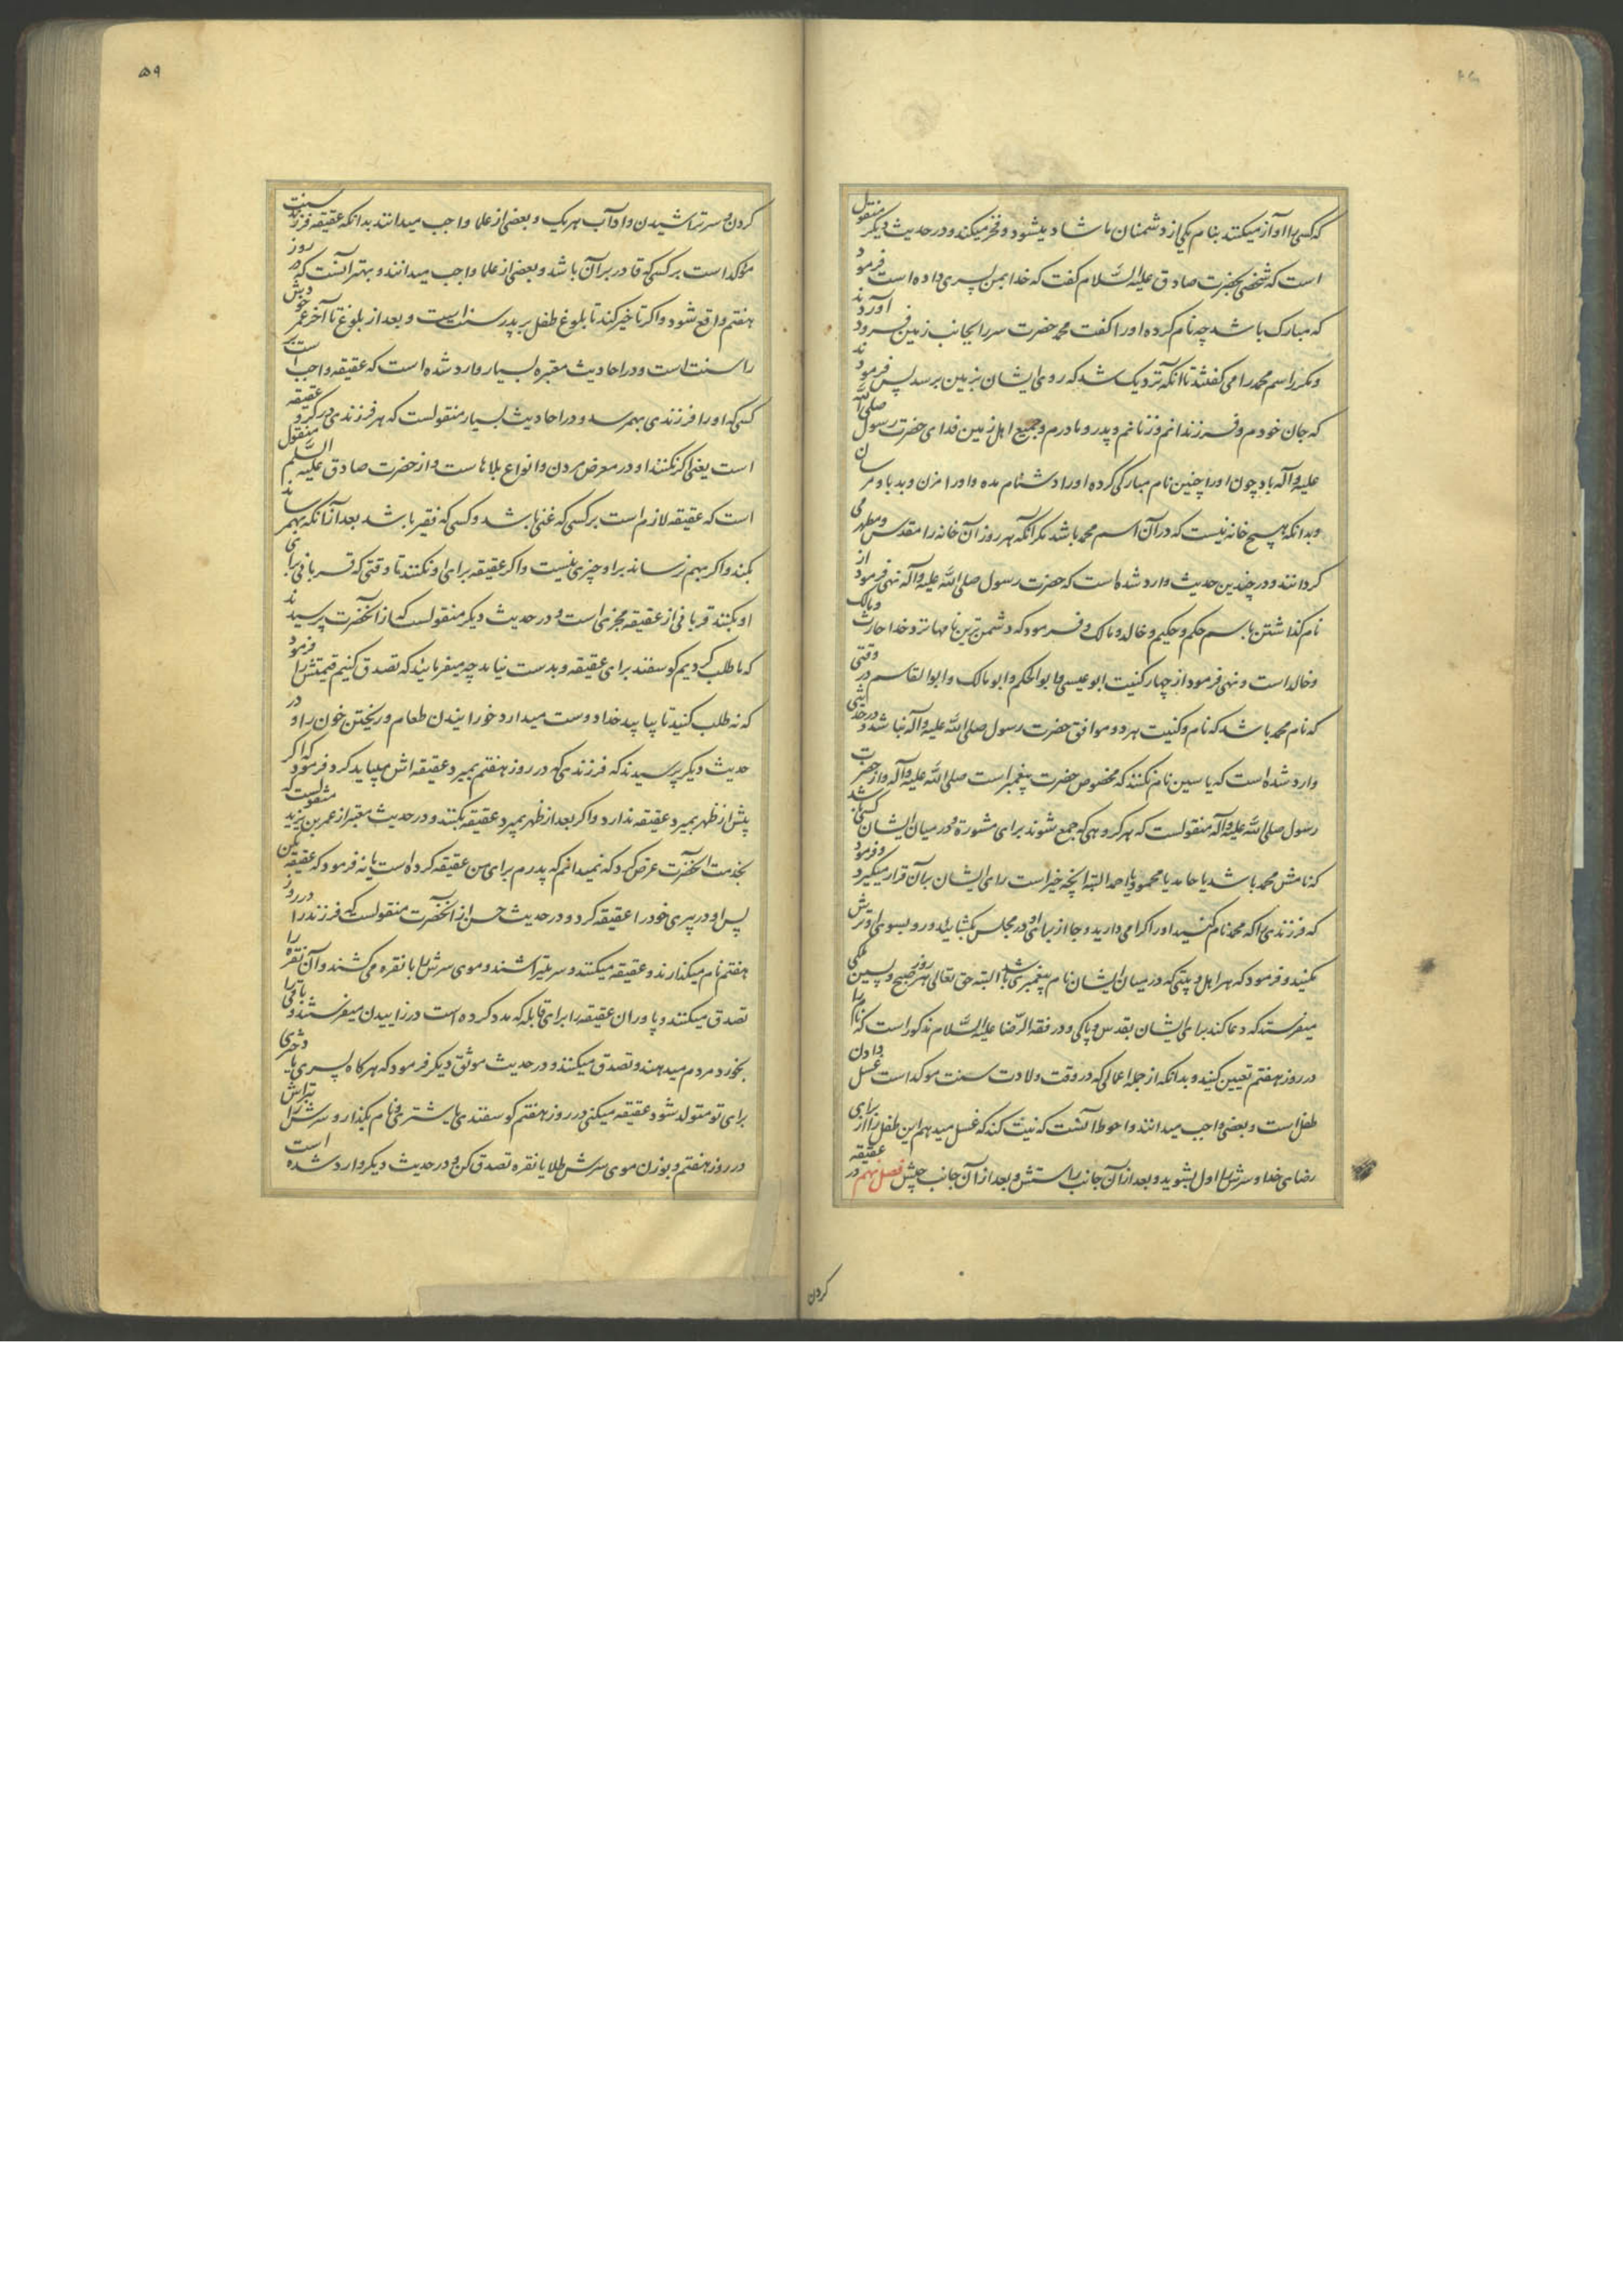 که کسی را آواز میکنند بنام یکی از دشمنان ما شاد میشود و فخر میکند و در حدیث دیگر منقول
است که شخصی بحضرت صادق علیه السّلام گفت که خدا بمن پسری داده است فرمود
که مبارک باشد چه نام کرده او را گفت محمد حضرت سر را بجانب زمین فرود آوردند
و مکرر اسم محمد را می گفتند تا آنکه نزدیک شد که روی ایشان بزمین برسد پس فرمودند
که جان خودم و فرزندانم و زنانم و پدر و مادرم و جمیع اهل زمین فدای حضرت رسول صلی الله
علیه و آله باد چون او را چنین نام مبارکی کرده او را دشنام مده و او را مزن و بد باو مرسان
و بدانکه هیچ خانه نیست که در آن اسم محمد باشد مگر آنکه هر روز آن خانه را مقدس و مطهر می
گردانند و در چندین حدیث وارد شده است که حضرت رسول صلی الله علیه و آله نهی فرمود از
نام گذاشتن باسم حکم و حکیم و خالد و مالک و فرمود که دشمن ترین نامها نزد خدا حارث و مالک
و خالد است و نهی فرمود از چهار کنیت ابو عیسی و ابو الحکم و ابو مالک و ابو القاسم در وقتی
که نام محمد باشد که نام و کنیت هر دو موافق حضرت رسول صلی الله علیه و آله نباشد و در حدیثی
وارد شده است که یاسین نام نکنند که مخصوص حضرت پیغمبر است صلی الله علیه و آله و از حضرت
رسول صلی الله علیه و آله منقولست که هر گروهی که جمع شوند برای مشورة و در میان ایشان کسی باشد
که نامش محمد باشد یا حامد یا محمود یا احمد البته آنچه خیر است رای ایشان بآن قرار میگیرد و فرمود
که فرزندی را که محمد نام کنید او را گرامی دارید و جا از برای او در مجلس بگشایید و رو بسوی او ترش
مکنید و فرمود که هر اهل بیتی که در میان ایشان نام پیغمبری باشد البته حق تعالی هر روز صبح و پسین ملکی
میفرستد که دعا کند برای ایشان بقدس و پاکی و در فقه الرّضا علیه السّلام مذکور است که نام را
در روز هفتم تعیین کنید و بدانکه از جمله اعمالی که در وقت ولادت سنت موکد است غسل دادن
طفل است و بعضی واجب میدانند و احوط آنست که نیت کند که غسل میدهم این طفل را از برای
رضای خدا و سرش را اول بشوید و بعد از آن جانب راستش و بعد از آن جانب چپش فصل نهم در عقیقه
کردن
۵۹
کردن و سر تراشیدن و آداب هر یک و بعضی از علما واجب میدانند بدانکه عقیقه فرزند سنت
مؤکد است بر کسی که قادر بر آن باشد و بعضی از علما واجب میدانند و بهتر آنست که در روز
هفتم واقع شود و اگر تاخیر کند تا بلوغ طفل بر پدر سنت است و بعد از بلوغ تا آخر عمر بر خودش
را سنت است و در احادیث معتبره بسیار وارد شده است که عقیقه واجب است بر
کسی که او را فرزندی بهمرسد و در احادیث بسیار منقولست که هر فرزندی در گرو عقیقه
است یعنی اگر نکنند او در معرض مردن و انواع بلاها است و از حضرت صادق علیه السلم منقول
است که عقیقه لازم است بر کسی که غنی باشد و کسی که فقیر باشد بعد از آنکه بهمرساند
بکند و اگر بهم نرساند بر او چیزی نیست و اگر عقیقه برای او نکنند تا وقتی که قربانی برای
او بکنند قربانی از عقیقه مجزی است و در حدیث دیگر منقولست که از آنحضرت پرسیدند
که ما طلب کردیم گوسفند برای عقیقه و بدست نیامد چه میفرمائید که تصدق کنیم قیمتش را فرمود
که نه طلب کنید تا بیابید خدا دوست میدارد خورانیدن طعام و ریختن خون را و در
حدیث دیگر پرسیدند که فرزندی که در روز هفتم بمیرد عقیقه اش میباید کرد فرمود که اگر
پیش از ظهر بمیرد عقیقه ندارد و اگر بعد از ظهر بمیرد عقیقه بکنند و در حدیث معتبر از عمر بن یزید منقولست که
بخدمت آنحضرت عرض کرد که نمیدانم که پدرم برای من عقیقه کرده است یا نه فرمود که عقیقه بکن
پس او در پیری خود را عقیقه کرد و در حدیث حسن از آنحضرت منقولست که فرزند را در روز
هفتم نام میگذارند و عقیقه میکنند و سر میتراشند و موی سرش را با نقره می کشند و آن نقره را
تصدق میکنند و پا و ران عقیقه را برای قابله که مدد کرده است در زاییدن میفرستند و باقی را
بخورد مردم میدهند و تصدق میکنند و در حدیث موثق دیگر فرمود که هر گاه پسری یا دختری
برای تو متولد شود عقیقه میکنی در روز هفتم گوسفندی یا شتری و نام بگذار و سرش را بتراش
در روز هفتم و بوزن موی سرش طلا یا نقره تصدق کن و در حدیث دیگر وارد شده است